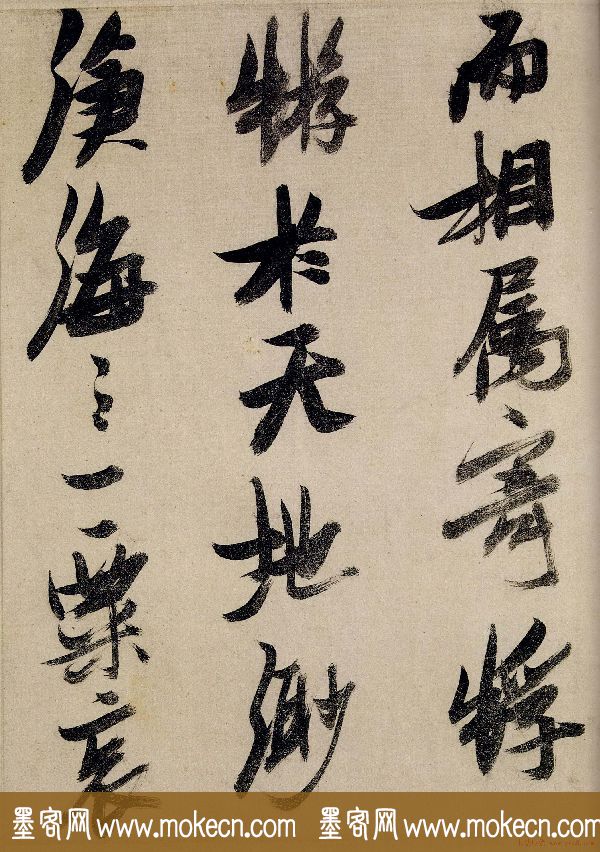 而相属寄蜉
蝣於天地渺
滄海之一粟哀
墨客网 www.mokecn.com 墨客网 www.mokecn.com